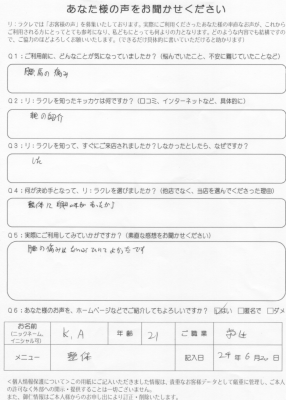 あなた様の声をお聞かせください
リ:ラクレでは「お客様の声」を募集いたしております。実際にご利用くださったあなた様の率直なお声が、これから
ご利用される方にとってとても参考になり、私どもにとっても何よりの力となります。どのような内容でも結構ですの
で、ご協力のほどよろしくお願いいたします。(できるだけ具体的に書いていただけると助かります)
Q1:ご利用前に、どんなことが気になっていましたか?(悩んでいたこと、不安に感じていたことなど)
の痛み
Q2:リ:ラクレを知ったキッカケは何ですか?(口コミ、インターネットなど、具体的に)
親の紹介
Q3:リ:ラクレを知って、すぐにご来店されましたか?しなかったとしたら、なぜですか?
した
Q4:何が決め手となって、リ:ラクレを選びましたか?(他店でなく、当店を選んでくださった理由)
整体に興味があったから
Q5:実際にご利用してみていかがですか?(素直な感想をお聞かせください)
の痛みは なくなってよかったです
Q6:あなた様のお声を、ホームページなどでご紹介してもよろしいですか? ☑はい □匿名で □ダメ
お名前
(ニックネーム、
イニシャル可)
K.A
年齢
21
ご職業
学生
メニュー
整体
記入日
24年6月20日
<個人情報保護について>この用紙にご記入いただきました情報は、重要なお客様データとして厳重に管理し、ご本人
の許可なく外部への開示・提供することは一切ございません。
また、御仁情報はご本人様からのお申し出により訂正・削除いたします。